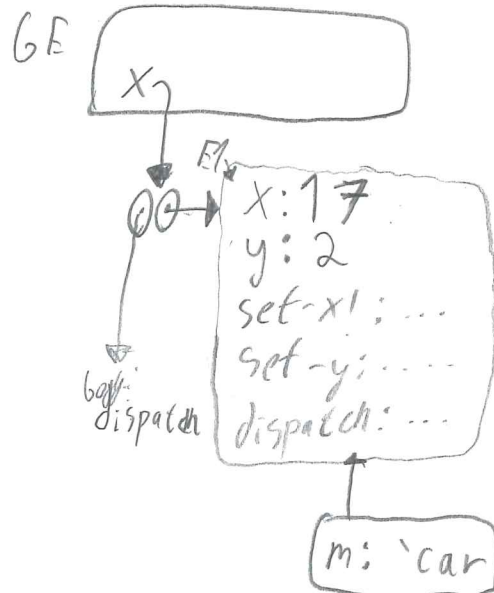 GE
x
E1
x: 17
y: 2
set-x!: ...
set-y: ....
dispatch: ...
body:
dispatch
m: 'car